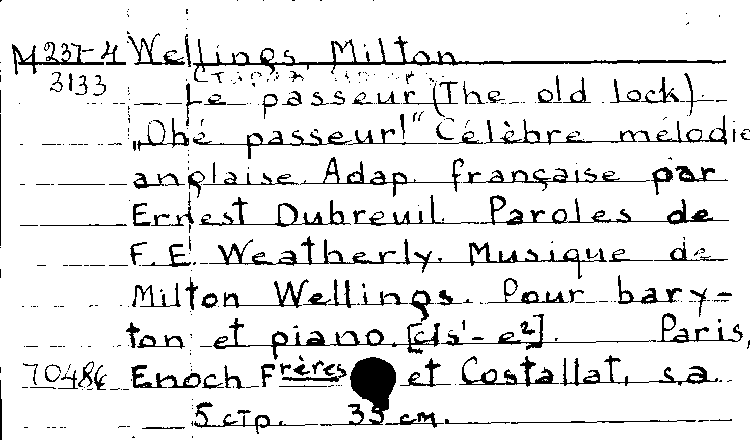 M 237-4 Wellings, Milton
3133
Le passeur (The old lock)
„Ohé passeur!“ Célèbre mélodie
anglaise. Adap. française par
Ernest Dubreuil. Paroles de
F. E. Weatherly. Musique de
Milton Wellings. Pour bary-
ton et piano. [cis¹- e²]. Paris,
70486 Enoch Frères et Costallat, s.a.
5 стр. 35 см.